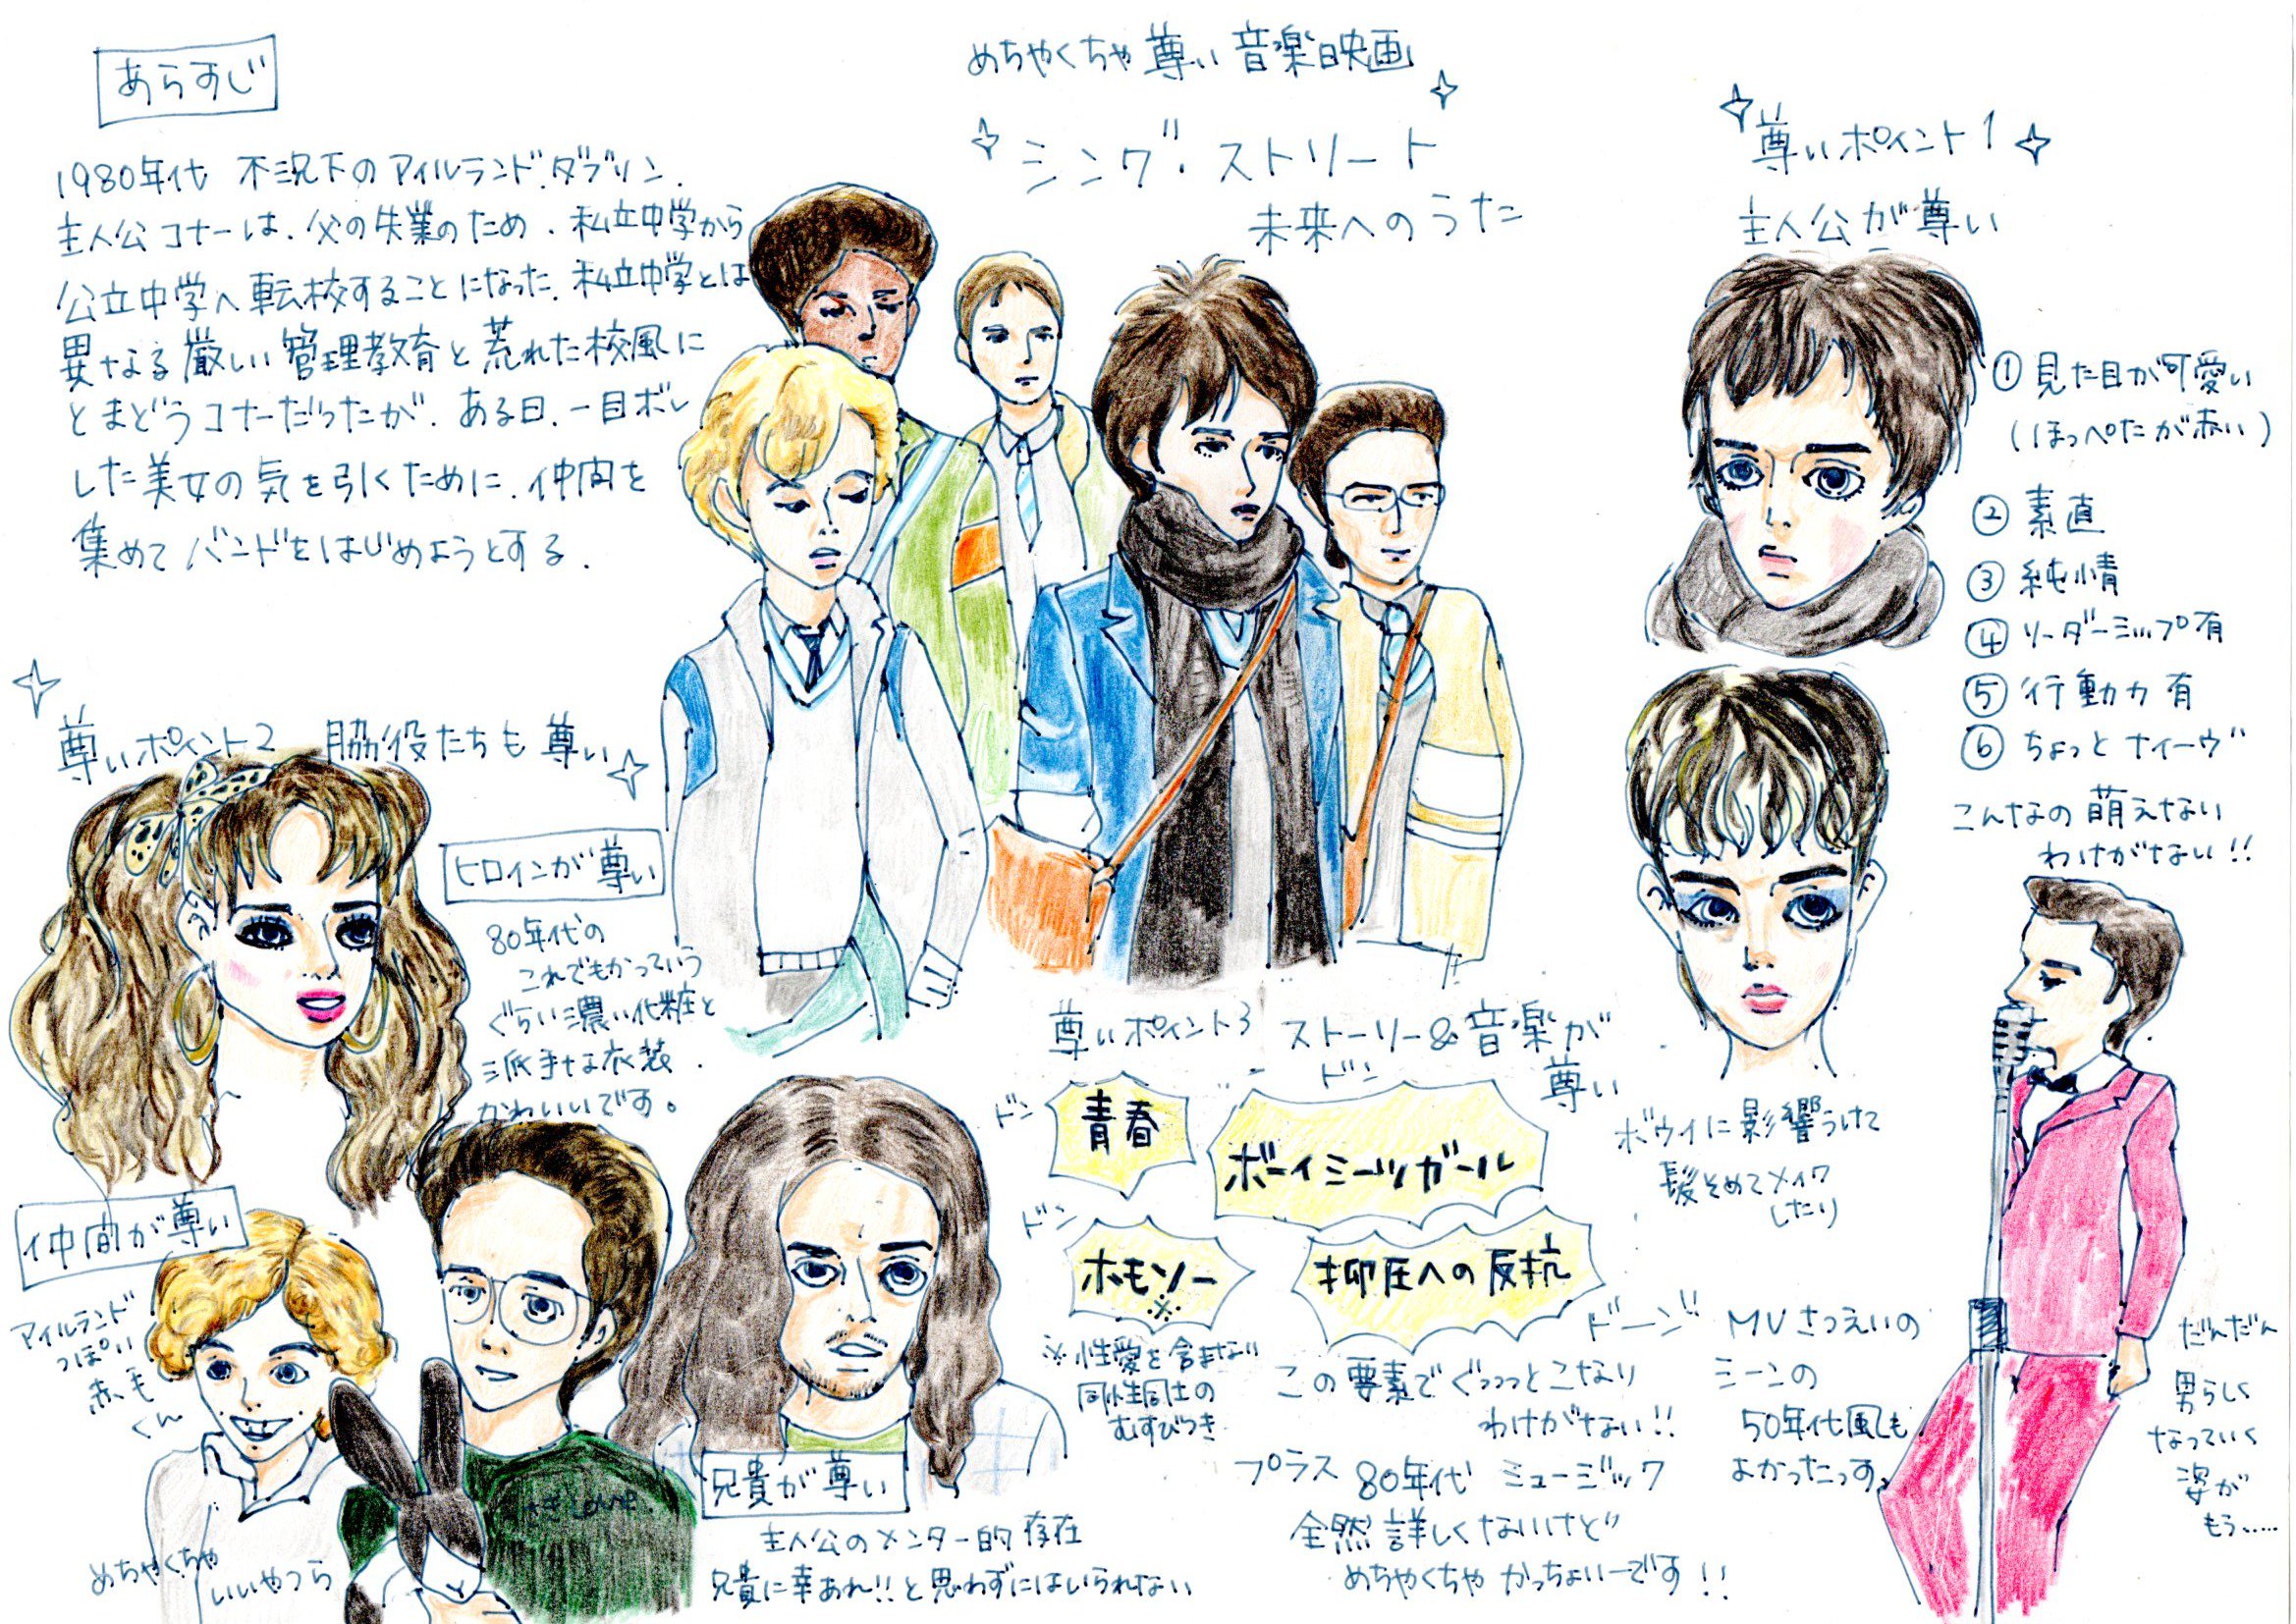 めちゃくちゃ尊い音楽映画
シング・ストリート
未来へのうた
あらすじ
1980年代 不況下のアイルランド、ダブリン.
主人公コナーは、父の失業のため、私立中学から
公立中学へ転校することになった。私立中学とは
異なる厳しい管理教育と荒れた校風に
とまどうコナーだったが、ある日、一目ボレ
した美女の気を引くために、仲間を
集めてバンドをはじめようとする.
尊いポイント1
主人公が尊い
① 見た目が可愛い
(ほっぺたが赤い)
② 素直
③ 純情
④ リーダーシップ有
⑤ 行動力有
⑥ ちょっとナイーヴ
こんなの萌えない
わけがない!!
ボウイに影響うけて
髪そめてメイク
したり
MVさつえいの
シーンの
50年代風も
よかったっす。
だんだん
男らしく
なっていく
姿が
もう……
尊いポイント2 脇役たちも尊い
ヒロインが尊い
80年代の
これでもかっていう
ぐらい濃い化粧と
派手な衣装.
かわいいです。
仲間が尊い
アイルランド
っぽい
赤毛
くん
めちゃくちゃ
いいやつら
兄貴が尊い
主人公のメンター的存在
兄貴に幸あれ!!と思わずにはいられない
尊いポイント3 ストーリー&音楽が
尊い
ドン
青春
ドン
ボーイミーツガール
ドン
ホモソー
※
抑圧への反抗
ドーン
※性愛を含まない
同性同士の
むすびつき
この要素でぐっっっとこない
わけがない!!
プラス 80年代 ミュージック
全然詳しくないけど
めちゃくちゃかっちょいーです!!